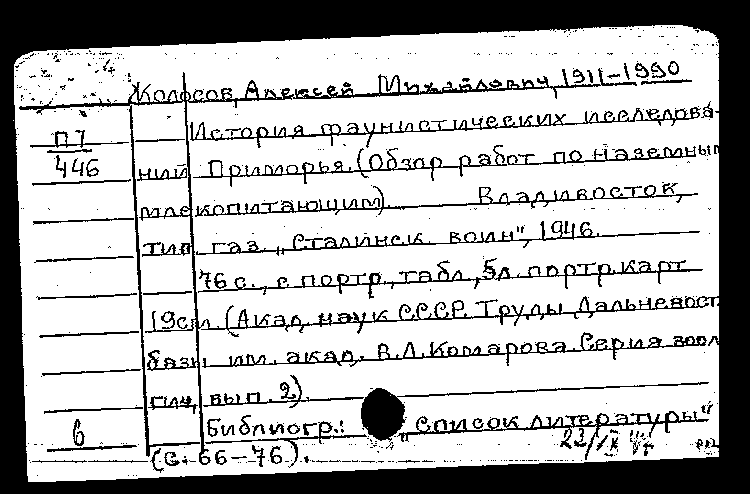 Колосов, Алексей Михайлович, 1911-1990
П7
446
История фаунистических исследова-
ний Приморья. (Обзор работ по наземным
млекопитающим). Владивосток,
тип. газ. „Сталинск. воин", 1946.
76 с., с портр., табл., 5 л. портр. карт
19 см. (Акад. наук СССР. Труды Дальневост
базы им. акад. В.Л. Комарова. Серия зооло
гич, вып. 2).
6
Библиогр.: „Список литературы"
(с. 66-76).